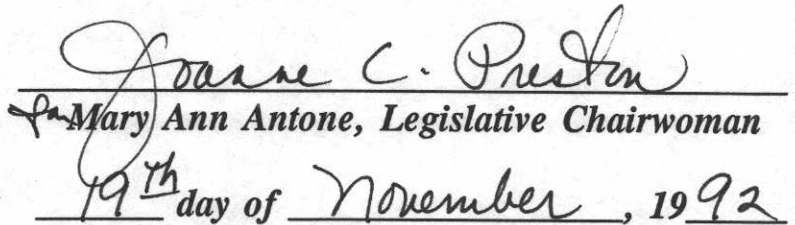 Joanne C. Preston
for Mary Ann Antone, Legislative Chairwoman
19th day of November, 1992